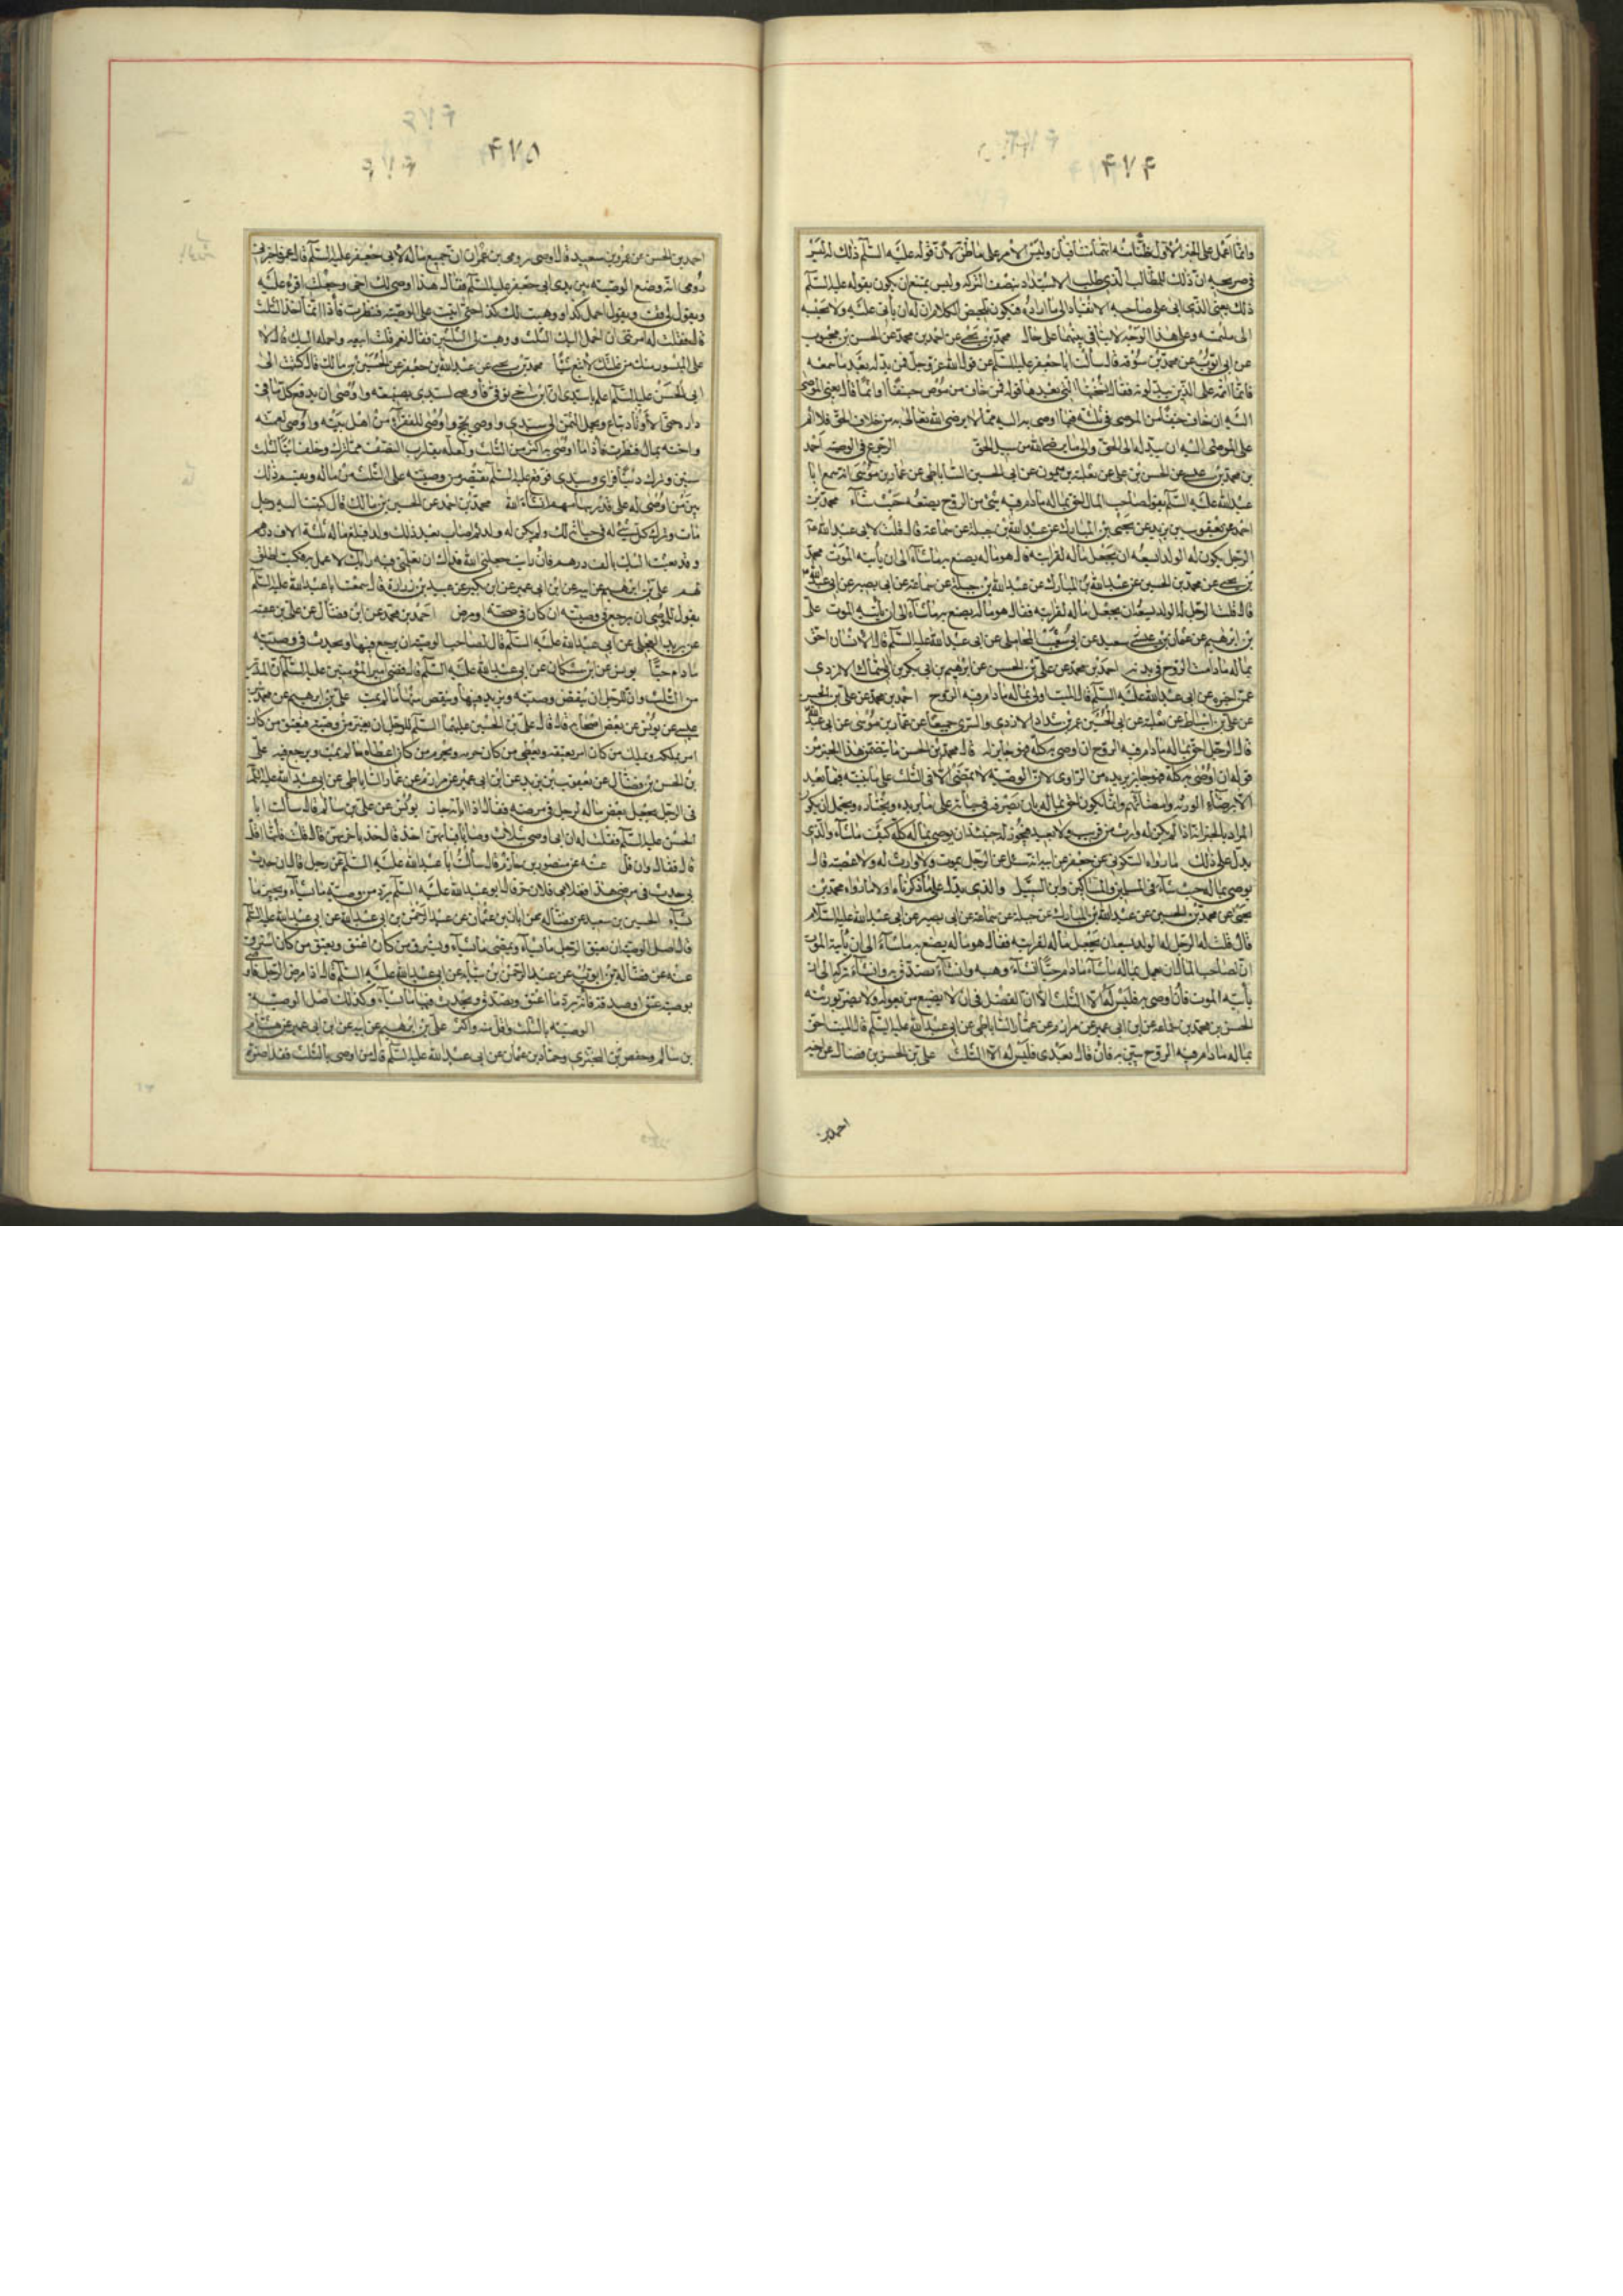 ۴۷۴
وانما عمل على الخبر الاول ظنا منه انهما متنافيان وليس الامر على ما ظن لان قوله عليه السلم ذلك له ليس
فى صريحه ان ذلك للمطالب الذى طلب الاستبداد بنصف التركه وليس يمتنع ان يكون بقوله عليه السلم
ذلك يعنى الذى ابى على صاحبه الانقياد الى ما اراده فيكون تلخيص الكلام ان له ان يأبى عليه ولا يجيبه
الى ملتمسه وعلى هذا الوجه لا تنافى بينهما على حال محمد بن يحيى عن احمد بن محمد عن الحسن بن محبوب
عن ابى ايوب عن محمد بن سوقه قال سألت ابا جعفر عليه السلم عن قول الله عز وجل فمن بدله بعد ما سمعه
فانما اثمه على الذين يبدلونه فقال نسختها التى بعدها قوله فمن خاف من موص جنفا او اثما قال يعنى الموصى
اليه ان خاف جنفا من الموصى فى ثلثه فيما اوصى به اليه مما لا يرضى الله تعالى به من خلاف الحق فلا اثم
على الموصى اليه ان يبدله الى الحق والى ما يرضى الله من سبيل الحق الرجوع فى الوصيه احمد
بن محمد بن عيسى عن الحسن بن على عن ثعلبة بن ميمون عن ابى الحسين الساباطى عن عمار بن موسى انه سمع ابا
عبدالله عليه السلم يقول صاحب المال احق بماله ما دام فيه شئ من الروح يضعه حيث شاء محمد بن
احمد عن يعقوب بن يزيد عن يحيى بن المبارك عن عبدالله بن جبلة عن سماعة قال قلت لابى عبدالله ع
الرجل يكون له الولد ايسعه ان يجعل ماله لقرابته قال هو ماله يصنع به ما شاء الى ان يأتيه الموت محمد
بن يحيى عن محمد بن الحسين عن عبدالله بن المبارك عن عبدالله بن جبلة عن سماعة عن ابى بصير عن ابى عبدالله
قال قلت الرجل له الولد يسعه ان يجعل ماله لقرابته فقال هو ماله يصنع به ما شاء الى ان يأتيه الموت على
بن ابرهيم عن عثمان بن سعيد عن ابى المحاملى عن ابى عبدالله عليه السلم قال الانسان احق
بماله ما دامت الروح فى بدنه احمد بن محمد عن على بن الحسن عن ابرهيم بن ابى بكر بن ابى السمال الازدى
عمن اخبره عن ابى عبدالله عليه السلم قال الميت اولى بماله ما دام فيه الروح احمد بن محمد عن على بن الحسن
عن على بن اسباط عن ثعلبة عن ابى الحسين عمر بن شداد الازدى والسرى جميعا عن عمار بن موسى عن ابى عبدالله
قال الرجل احق بماله ما دام فيه الروح ان اوصى به كله فهو جايز له قال محمد بن الحسن ما يتضمن هذا الخبر من
قوله ان اوصى به كله فهو جايز
الا برضاء الورثه
المراد بالخبر انه اذا لم يكن له وارث من قريب ولا بعيد فيجوز له حينئذ ان يوصى بماله كله كيف ما شاء والذى
يدل على ذلك ما رواه السكونى عن جعفر عن ابيه انه سئل عن الرجل يموت ولا وارث له ولا عصبه قال
يوصى بماله حيث شاء فى المسلمين والمساكين وابن السبيل والذى يدل على ما ذكرناه اولا ما رواه محمد بن
يحيى عن محمد بن الحسين عن عبدالله بن المبارك عن جبلة عن سماعة عن ابى بصير عن ابى عبدالله عليه السلام
قال قلت له الرجل له الولد يسعه ان يجعل ماله لقرابته فقال هو ماله يصنع به ما شاء الى ان يأتيه الموت
ان لصاحب المال ان يعمل بماله ما شاء ما دام حيا ان شاء وهبه وان شاء تصدق به وان شاء تركه الى ان
يأتيه الموت فان اوصى به فليس له الا الثلث الا ان الفضل فى ان لا يضيع من يعوله ولا يضر بورثته
الحسن بن محمد بن سماعة عن ابن ابى عمير عن مرازم عن عمار الساباطى عن ابى عبدالله عليه السلم قال الميت احق
بماله ما دام فيه الروح يبين به فان قال بعدى فليس له الا الثلث على بن الحسن بن فضال عن اخيه
احمد بن
۴۷۵
احمد بن الحسن عن عمرو بن سعيد قال اوصى رومى بن عمران جميع ماله لابى جعفر عليه السلم قال عمرو
رومى انه وضع الوصيه بين يدى ابى جعفر عليه السلم فقال هذا اوصى لك اخى وجعلت اقرء عليه
ويقول لى قف ويقول احمل كذا ووهبت لك كذا حتى اتيت على الوصيه فنظرت فاذا انما اخذ الثلث
قال فقلت له امرتنى ان احمل اليك الثلث ووهبت لى الثلثين فقال نعم قلت ابيعه واحمله اليك قال لا
على الميسور منك من غلتك لا تبع شيئا محمد بن يحيى عن عبدالله بن جعفر عن الحسين بن مالك قال كتبت الى
ابى الحسن عليه السلم اعلم يا سيدى ان ابن اخ لى توفى فاوصى لسيدى بضيعه واوصى ان يدفع كل ما فى
داره حتى الاوتاد تباع ويحمل الثمن الى سيدى واوصى بحج واوصى للفقراء من اهل بيته واوصى لعمته
واخته بمال فنظرت فاذا ما اوصى به اكثر من الثلث ولعله يقارب النصف مما ترك وخلف ابنا لثلث
سنين وترك دينا فراى سيدى فوقع عليه السلم يقتصر من وصيته على الثلث من ماله ويقسم ذلك
بين من اوصى له على قدر سهامهم انشاء الله محمد بن احمد عن الحسين بن مالك قال كتبت اليه رجل
مات وترك كل شئ له فى حياته لك ولم يكن له ولد ثم اصاب بعد ذلك ولدا ومبلغ ماله ثلثة الاف درهم
وقد بعثت اليك بالف درهم فان رايت جعلنى الله فداك ان تعلمنى فيه رايك لاعمل به فكتب اطلق
لهم على بن ابرهيم عن ابيه عن ابن ابى عمير عن ابن بكير عن عبيد بن زرارة قال سمعت ابا عبدالله عليه السلم
يقول للموصى ان يرجع فى وصيته ان كان فى صحة او مرض احمد بن محمد عن ابن فضال عن على بن عقبه
عن بريد العجلى عن ابى عبدالله عليه السلم قال لصاحب الوصيه ان يرجع فيها ويحدث فى وصيته
ما دام حيا يونس عن ابن مسكان عن ابى عبدالله عليه السلم قال قضى امير المؤمنين عليه السلم ان المدبر
من الثلث وان للرجل ان ينقض وصيته ويزيد فيها وينقص منها ما لم يمت على بن ابرهيم عن محمد بن
عيسى عن يونس عن بعض اصحابه قال قال على بن الحسين عليهما السلم للرجل ان يغير من وصيته فيعتق من كان
امر بملكه ويملك من كان امر بعتقه ويعطى من كان حرمه ويحرم من كان اعطاه ما لم يمت ويرجع فيه على
بن الحسن بن فضال عن يعقوب بن يزيد عن ابن ابى عمير عن مرازم عن عمار الساباطى عن ابى عبدالله عليه السلم
فى الرجل يجعل بعض ماله لرجل فى مرضه فقال اذا ابانه جاز يونس عن على بن سالم قال سألت ابا
الحسن عليه السلم فقلت له ان ابى اوصى بثلاث وصايا فبايهن اخذ قال خذ باخرهن قال قلت فانها اقل
قال فقال وان قل عنه عن منصور بن حازم قال سألت ابا عبدالله عليه السلم عن رجل قال ان حدث
بى حدث فى مرضى هذا فغلامى فلان حر قال ابو عبدالله عليه السلم يرد من وصيته ما يشاء ويجيز ما
يشاء الحسين بن سعيد عن فضاله عن ابان بن عثمان عن عبدالرحمن بن ابى عبدالله عن ابى عبدالله عليه السلم
قال اصل الوصيه ان يعتق الرجل ما يشاء ويمضى ما يشاء ويسترق من كان اعتق ويعتق من كان استرق
عنه عن فضاله بن ايوب عن عبدالرحمن بن سيابه عن ابى عبدالله عليه السلم قال اذا مرض الرجل فاوصى
بوصيه عتق او صدقه فانه يرد ما اعتق وتصدق ويحدث فيها ما يشاء وكذلك اصل الوصيه
الوصيه بالثلث واقل منه واكثر على بن ابرهيم عن ابيه عن ابن ابى عمير عن هشام
بن سالم وحفص بن البخترى وحماد بن عثمان عن ابى عبدالله عليه السلم قال من اوصى بالثلث فقد اضر